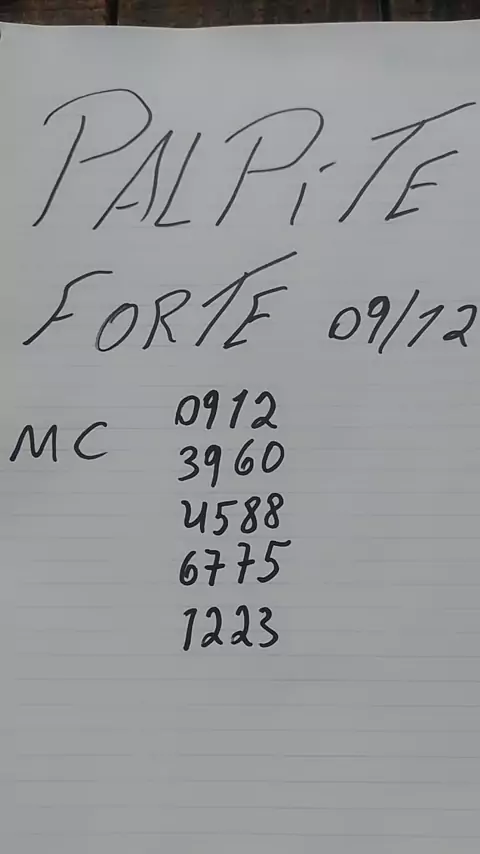 PALPiTE
FORTE 09/12
0912
MC 3960
4588
6775
1223